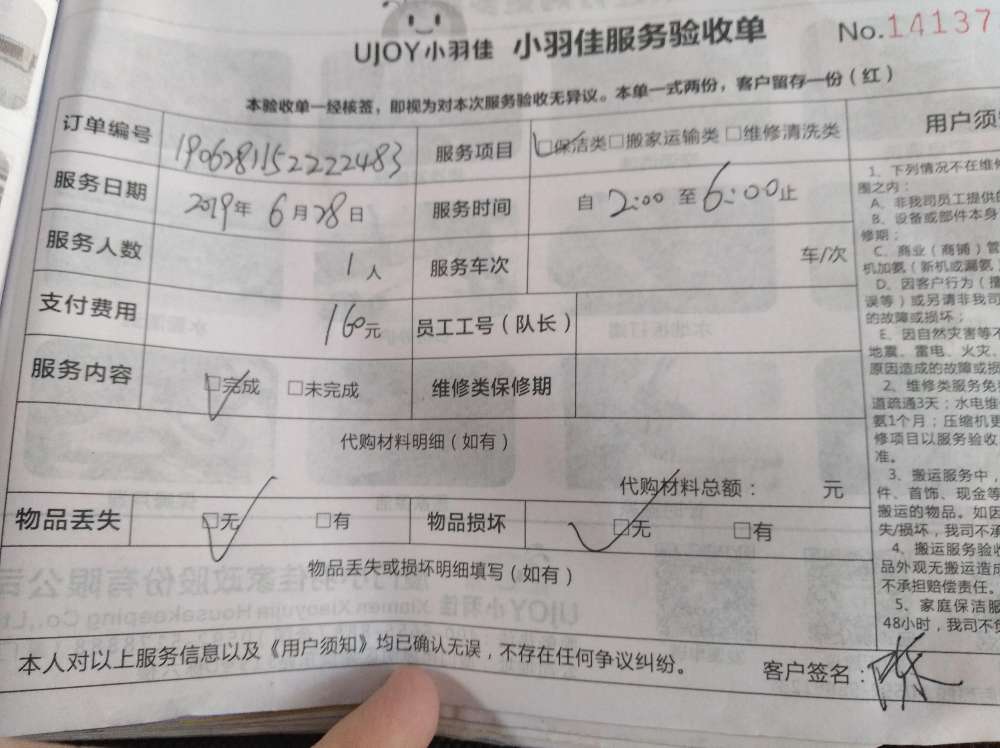 UJOY小羽佳 小羽佳服务验收单 No.14137
本验收单一经核签，即视为对本次服务验收无异议。本单一式两份，客户留存一份（红）
订单编号 1906281152222483 服务项目 □保洁类□搬家运输类 □维修清洗类
服务日期 2019年 6月28日 服务时间 自 2:00 至 6:00止
服务人数 1人 服务车次 车/次
支付费用 160元 员工工号（队长）
服务内容 □完成 □未完成 维修类保修期
代购材料明细（如有）
代购材料总额： 元
物品丢失 □无 □有 物品损坏 □无 □有
物品丢失或损坏明细填写（如有）
本人对以上服务信息以及《用户须知》均已确认无误，不存在任何争议纠纷。 客户签名：陈
用户须
1、下列情况不在维
围之内：
A、非我司员工提供的
B、设备或部件本身
修期；
C、商业（商铺）管
机加氨（新机或漏氨）
D、因客户行为（撞
误等）或另请非我司
的故障或损坏；
E、因自然灾害等不
地震、雷电、火灾、
原因造成的故障或损
2、维修类服务免
道疏通3天；水电维
氨1个月；压缩机更
修项目以服务验收
准。
3、搬运服务中，
件、首饰、现金等
搬运的物品。如因
失/损坏，我司不承
4、搬运服务验收
品外观无搬运造成
不承担赔偿责任。
5、家庭保洁服
48小时，我司不负